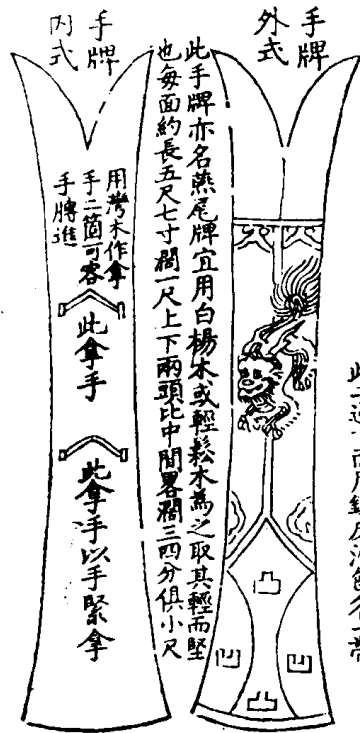 手牌
外式
此手牌亦名燕尾牌宜用白楊木或輕鬆木為之取其輕而堅
也每面約長五尺七寸濶一尺上下兩頭比中間畧濶三四分俱小尺
手牌
内式
用灣木作拿
手二箇可容
手膊進
此拿手
此拿手以手緊拿